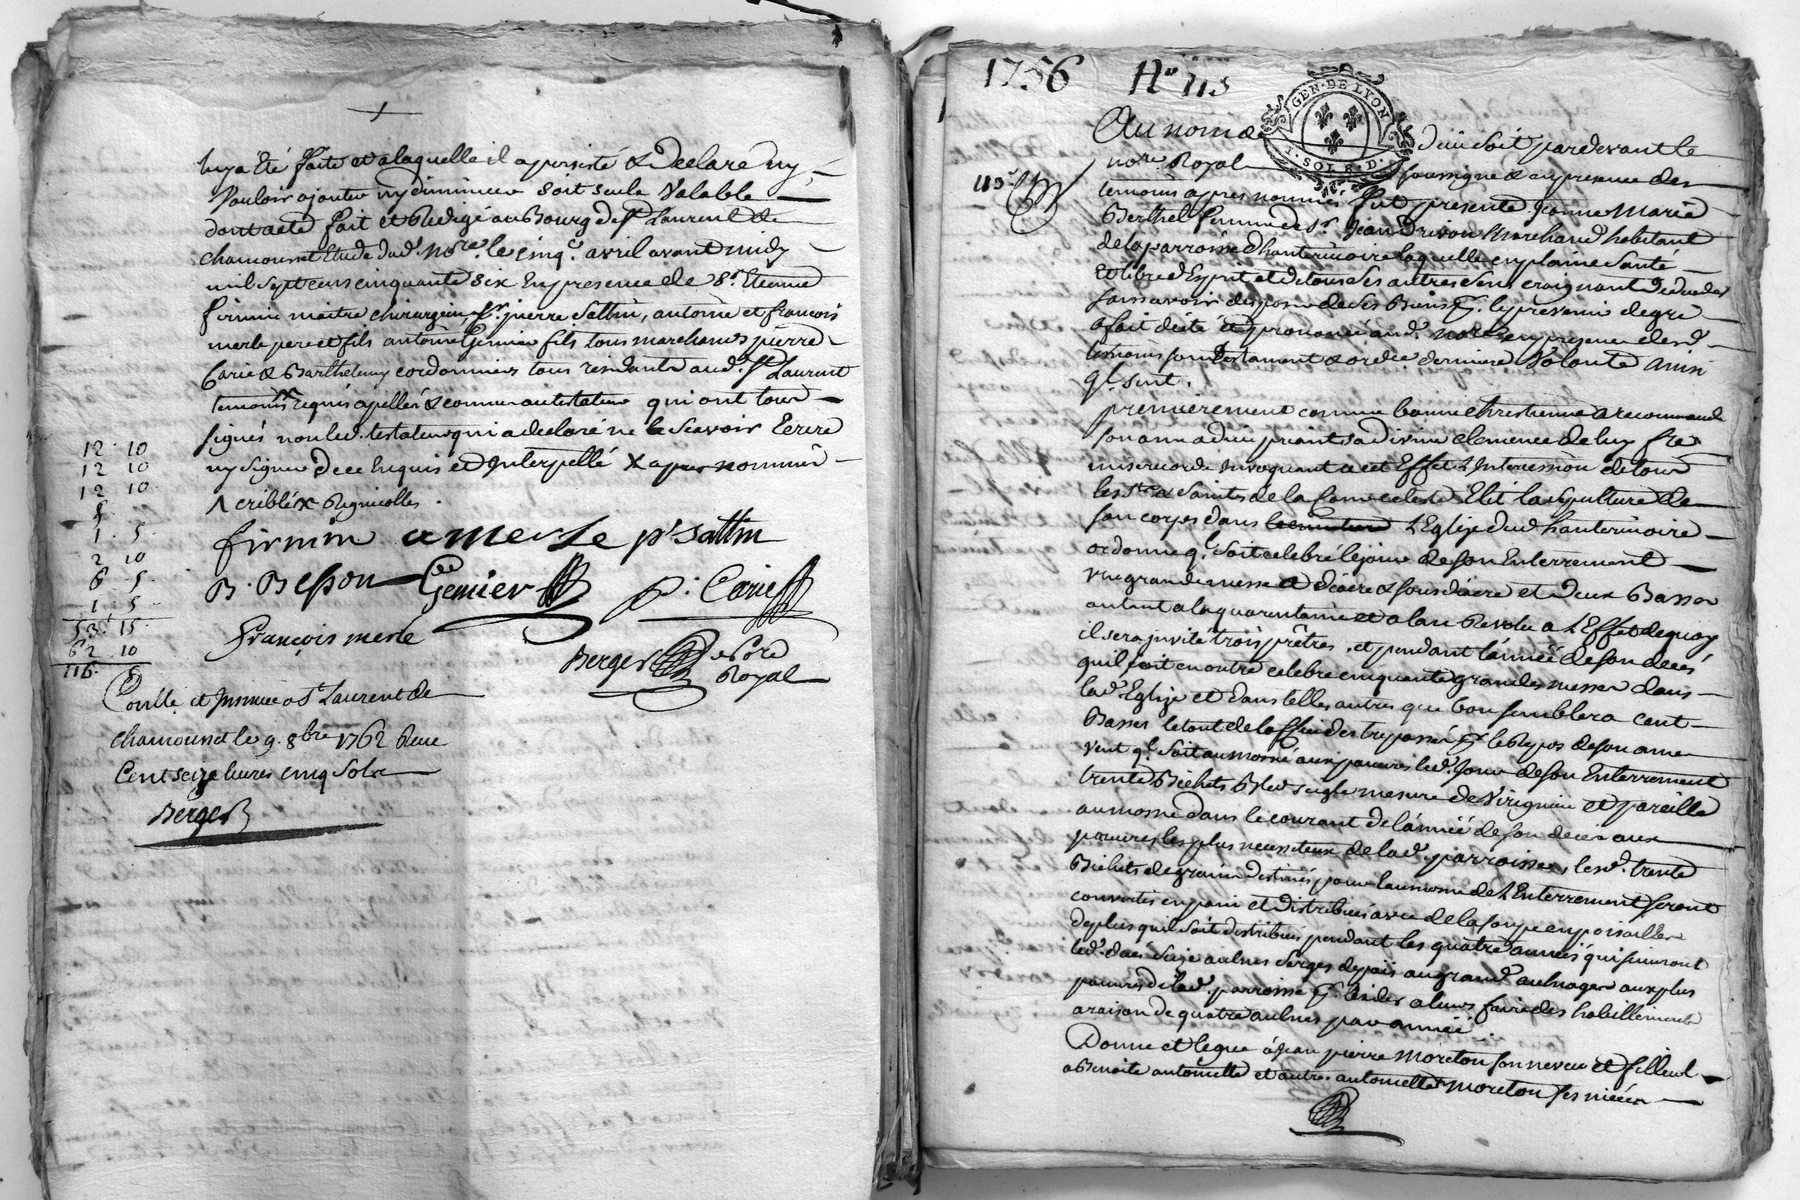 luy a Eté faite et a laquelle il a persisté & declaré ny
Vouloir ajouter ny diminuer soit seule Valable
dont acte fait et Redigé au Bourg de St Laurent de
chamousset Etude dud. Nore. le cinq. avril avant midy
mil sept cens cinquante six En presence de Sr. Etienne
firmin maitre chirurgien, Sr. pierre Sattin, antoine et françois
merle pere et fils antoine Gemier fils tous marchands pierre
Carie & Barthelemy cordonniers tous residants aud. St Laurent
temoins requis apellés & connus au testateur qui ont tous
signés non led. testateur qui a declaré ne le scavoir Ecrire
ny signer de ce Enquis et Interpellé X apres nommés
12 10
12 10
12 10
1 5
2 10
6 5
1 5
53 15
62 10
116. 5
firmin a merle pr Sattin
B. Besson Gemier p. Carie
françois merle
Berger Nore
Royal
Conlle. et Insinué a St Laurent de
chamousset le 9. 8bre 1762 Reçu
Cent seize livres cinq Sols
Berger
1756 No 115
GEN. DE LYON
1. SOL 8. D.
115e
Au nom de Dieu soit pardevant le
nore Royal soussigné & en presence des
temoins apres nommés fut presente Jeanne Marie
Berthet femme de Sr. Jean Drivon Marchand habitant
de la parroisse d'hauterivoire laquelle en plaine santé
et libre d'Esprit et de tous ses autres sens craignant
sans avoir disposé de ses Biens pr. le prevenir de gre
a fait dicté et prononcé aud. Nore. en presence desd.
temoins son testament & ordce. derniere Volonté ainsi
q'l. suit.
premierement comme bonne chrestienne a recommandé
son ame a dieu priant sa divine clemence de luy fre
misericorde invoquant a cet Effet l'Intercession de tous
les sts. & saintes de la Cour celeste Elit la sepulture de
son corps dans l'Eglise dud. hauterivoire
ordonne q'l. soit celebré le jour de son Enterrement
une grande messe a diacre & sousdiacre et deux Basses
autant a la quarantaine et a l'an Revolu a l'Effet de quoy
il sera invité trois prêtres, et pendant l'année de son decés
qu'il soit en outre celebré cinquante grandes messes dans
lad. Eglise et dans telles autres que bon semblera cent
Basses le tout de l'office des trepassés pr. le Repos de son ame
veut q'l. soit aumosné aux pauvres led. Jour de son Enterrement
trente Bichets Bled seigle mesure de Virignieu et pareille
aumosne dans le courant de l'année de son decés aux
pauvres les plus necessiteux de lad. parroisse, lesd. trente
Bichets de grain destinés pour l'aumosne de l'Enterrement seront
convertis en pain et distribués avec de la soupe
deplus qu'il soit distribués pendant les quatre années qui suivront
led. decés seize aulnes serges de païs au grand aulnage aux plus
pauvres de lad. parroisse pr. les ider a leurs faire des habillements
a raison de quatre aulnes par année
Donne et legue a Jean pierre Moreton son neveu et filleul
a Benoite antoinette et autre antoinette Moreton ses niéces